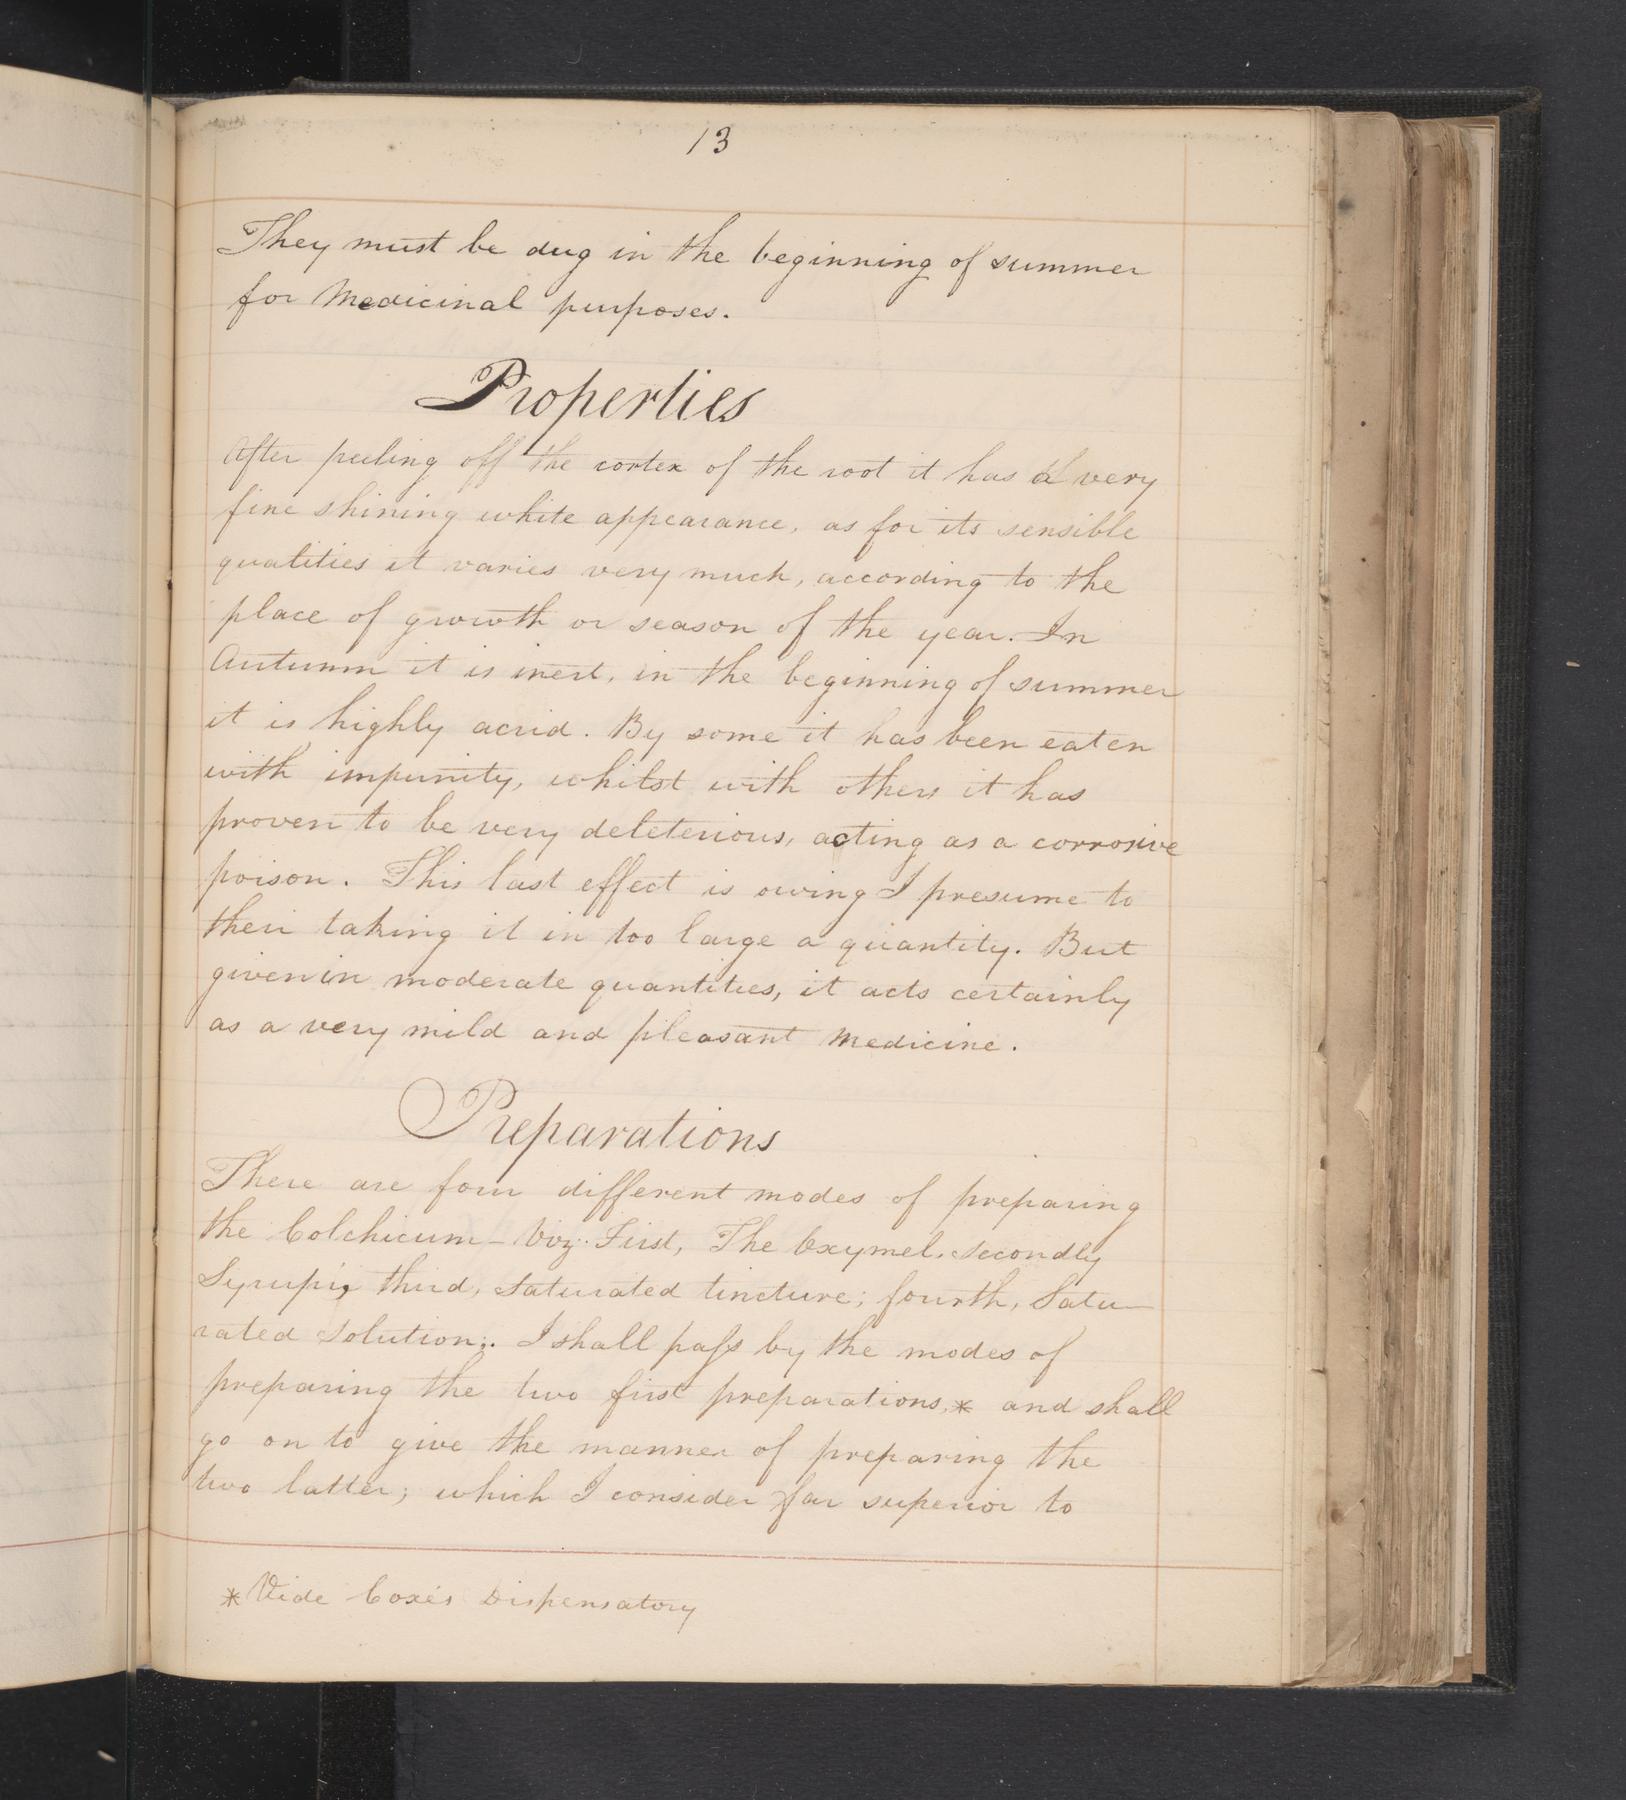 13
They must be dug in the beginning of summer
for Medicinal purposes.
Properties
After peeling off the cortex of the root it has a very
fine shining white appearance, as for its sensible
qualities it varies very much, according to the
place of growth or season of the year. In
Autumn it is inert, in the beginning of summer
it is highly acrid. By some it has been eaten
with impunity, whilst with others it has
proven to be very deleterious, acting as a corrosive
poison. This last effect is owing I presume to
their taking it in too large a quantity. But
given in moderate quantities, it acts certainly
as a very mild and pleasant Medicine.
Preparations
There are four different modes of preparing
the Colchicum – Viz. First, The Oxymel. Secondly
Syrupi; third, Saturated tincture; fourth, Satu-
rated Solution;. I shall paſs by the modes of
preparing the two first preparations,* and shall
go on to give the manner of preparing the
two latter; which I consider far superior to
* Vide Coxe's Dispensatory